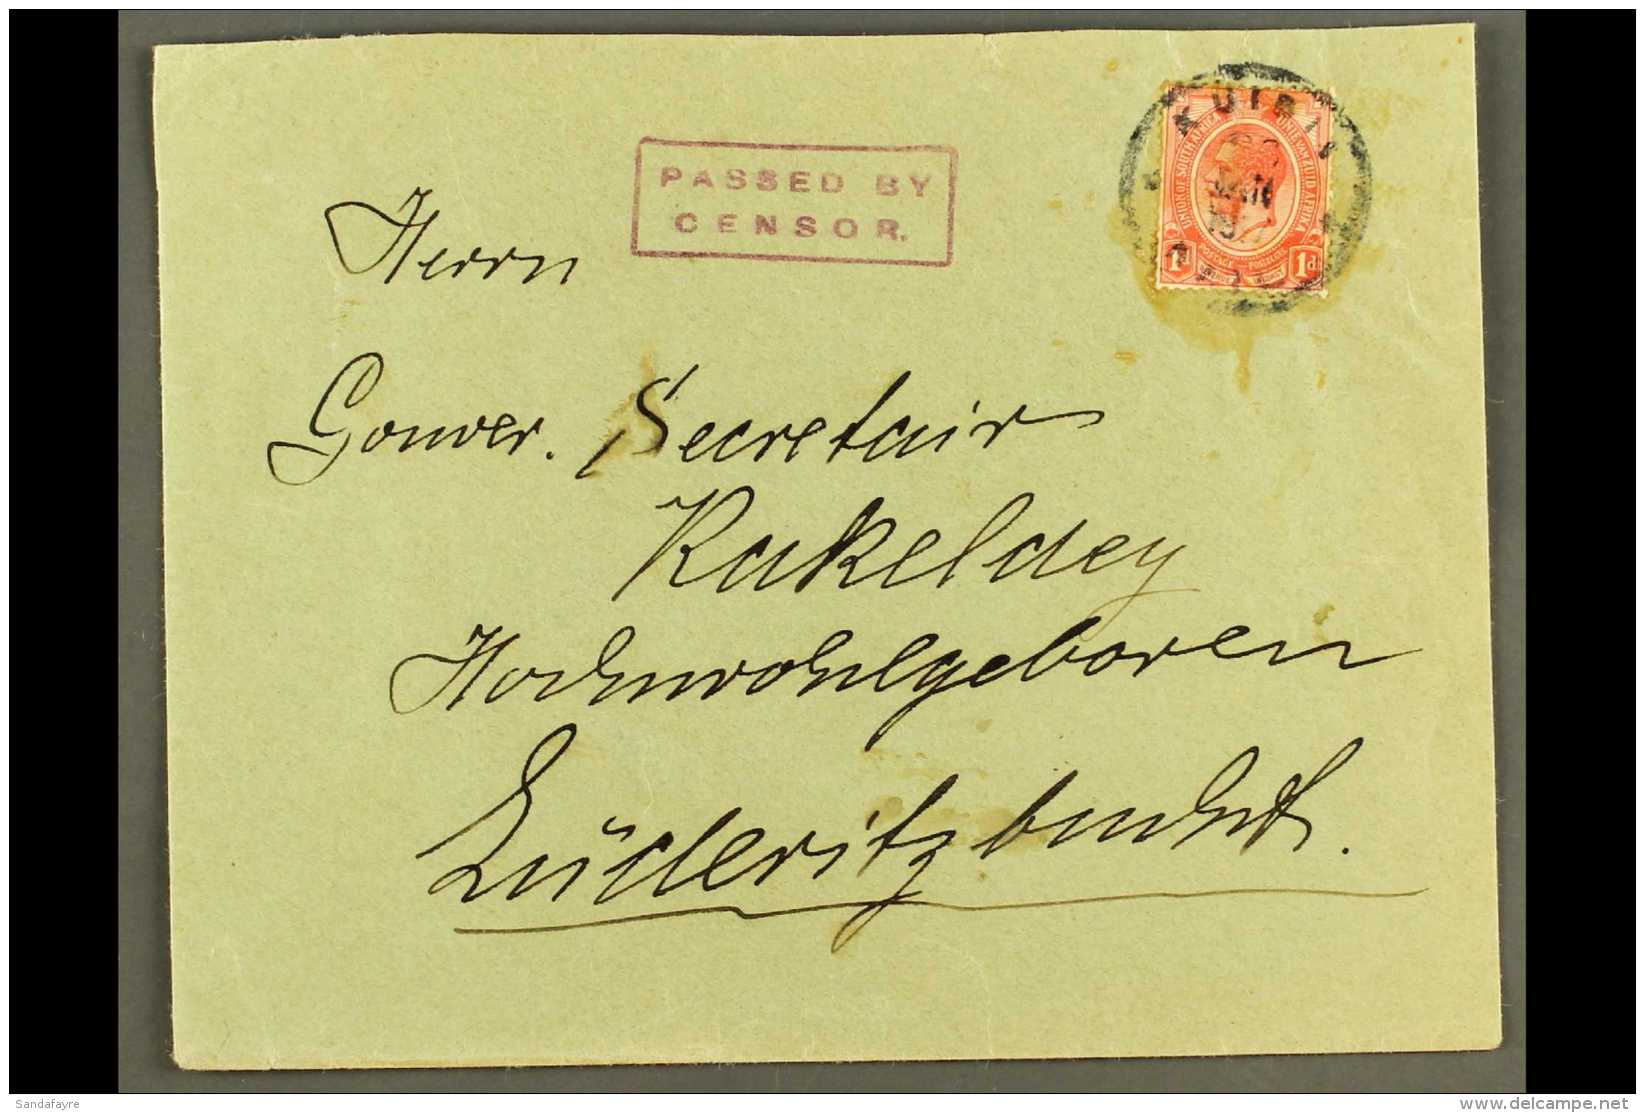 PASSED BY
CENSOR.
KUIBI
JAN
UNION OF SOUTH AFRICA
UNIE VAN ZUID AFRIKA
POSTAGE POSTZEGEL
1d
Herrn
Gouver. Secretair
Rakeldey
Hochwohlgeboren
Lüderitzbucht.
Sandafayre
www.delcampe.net